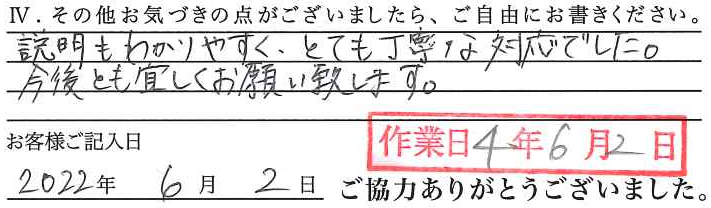 Ⅳ.その他お気づきの点がございましたら、ご自由にお書きください。
説明もわかりやすく、とても丁寧な対応でした。
今後とも宜しくお願い致します。
お客様ご記入日
作業日4年6月2日
2022年 6月 2日 ご協力ありがとうございました。